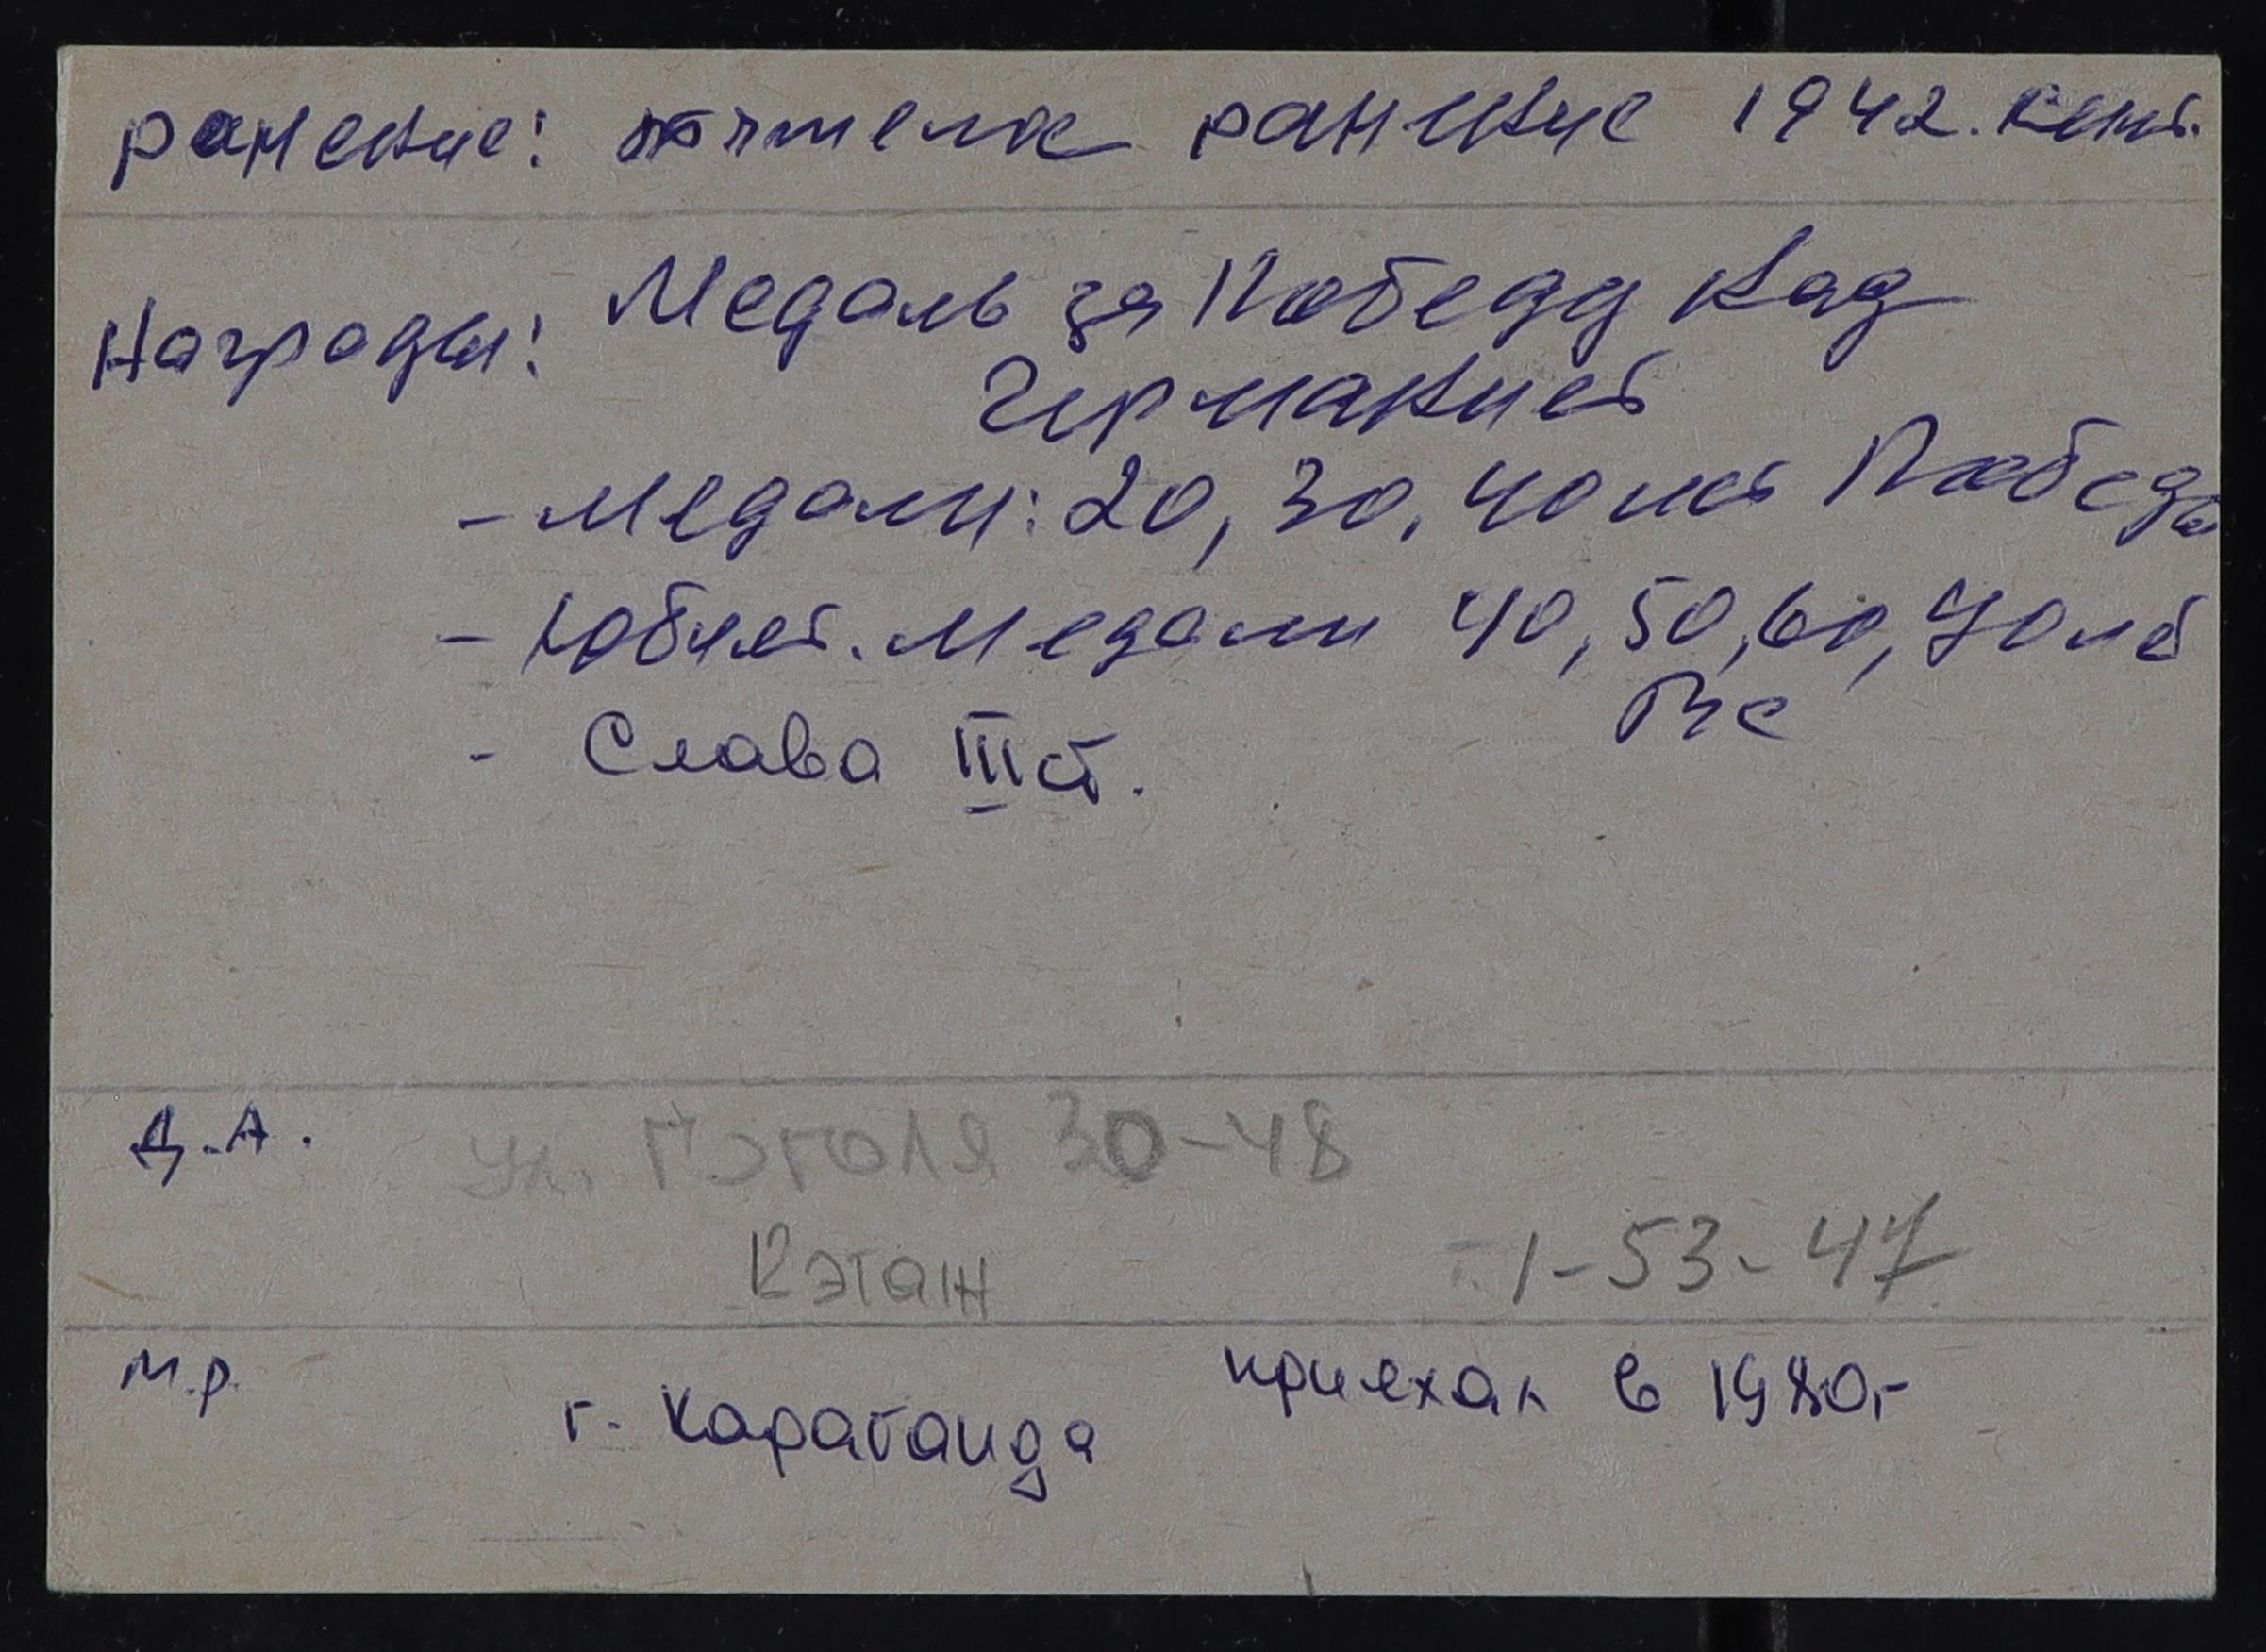 ранение: тяжелое ранение 1942.
Награды: Медаль за Победу над
Германией
- Медали: 20, 30, 40 лет Победы
- Юбилей. Медали 40, 50, 60, 70 лет
ВС
- Слава III ст.
Д.А. ул. Гоголя 30-48
этаж т. 1-53-47
М.р. г. Караганда приехал в 1980г